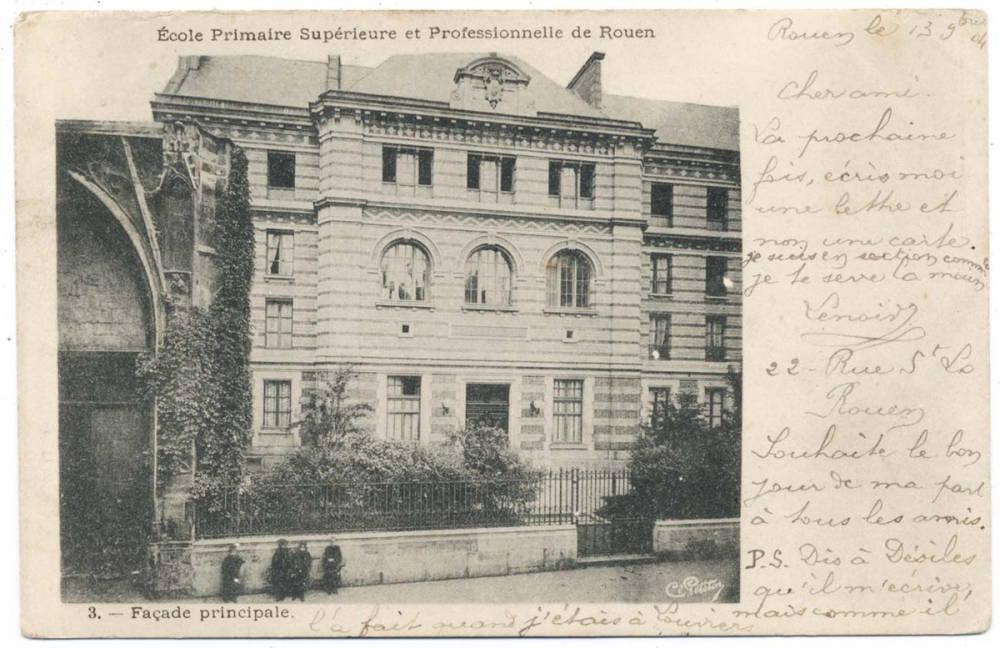 École Primaire Supérieure et Professionnelle de Rouen
Rouen le 13 9bre 04
Cher ami.
La prochaine
fois, écris moi
une lettre et
non une carte.
je suis en section comme
je te serre la main
Lenoir
22 - Rue St Lo
Rouen
Souhaite le bon
jour de ma part
à tous les amis.
P.S. Dis à Désiles
qu'il m'écrive,
mais comme il
l'a fait quand j'étais à Louviers
3. — Façade principale.